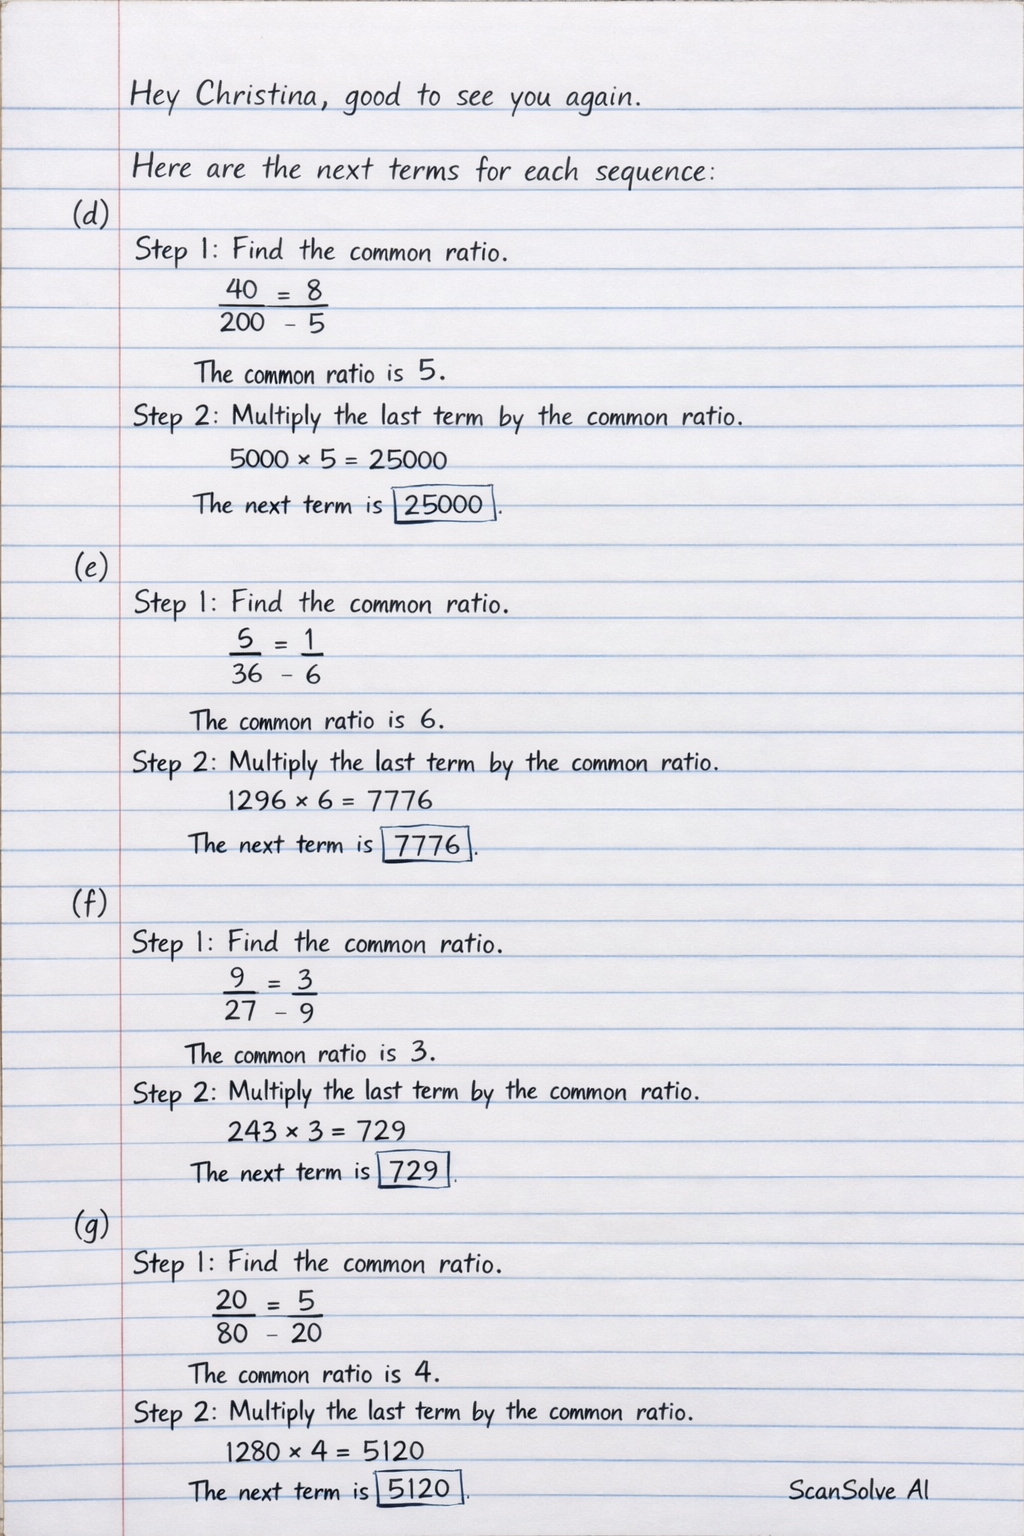 Hey Christina, good to see you again.
Here are the next terms for each sequence:
(d)
Step 1: Find the common ratio.
40 = 8
200 - 5
The common ratio is 5.
Step 2: Multiply the last term by the common ratio.
5000 × 5 = 25000
The next term is 25000.
(e)
Step 1: Find the common ratio.
5 = 1
36 - 6
The common ratio is 6.
Step 2: Multiply the last term by the common ratio.
1296 × 6 = 7776
The next term is 7776.
(f)
Step 1: Find the common ratio.
9 = 3
27 - 9
The common ratio is 3.
Step 2: Multiply the last term by the common ratio.
243 × 3 = 729
The next term is 729.
(g)
Step 1: Find the common ratio.
20 = 5
80 - 20
The common ratio is 4.
Step 2: Multiply the last term by the common ratio.
1280 × 4 = 5120
The next term is 5120.
ScanSolve AI